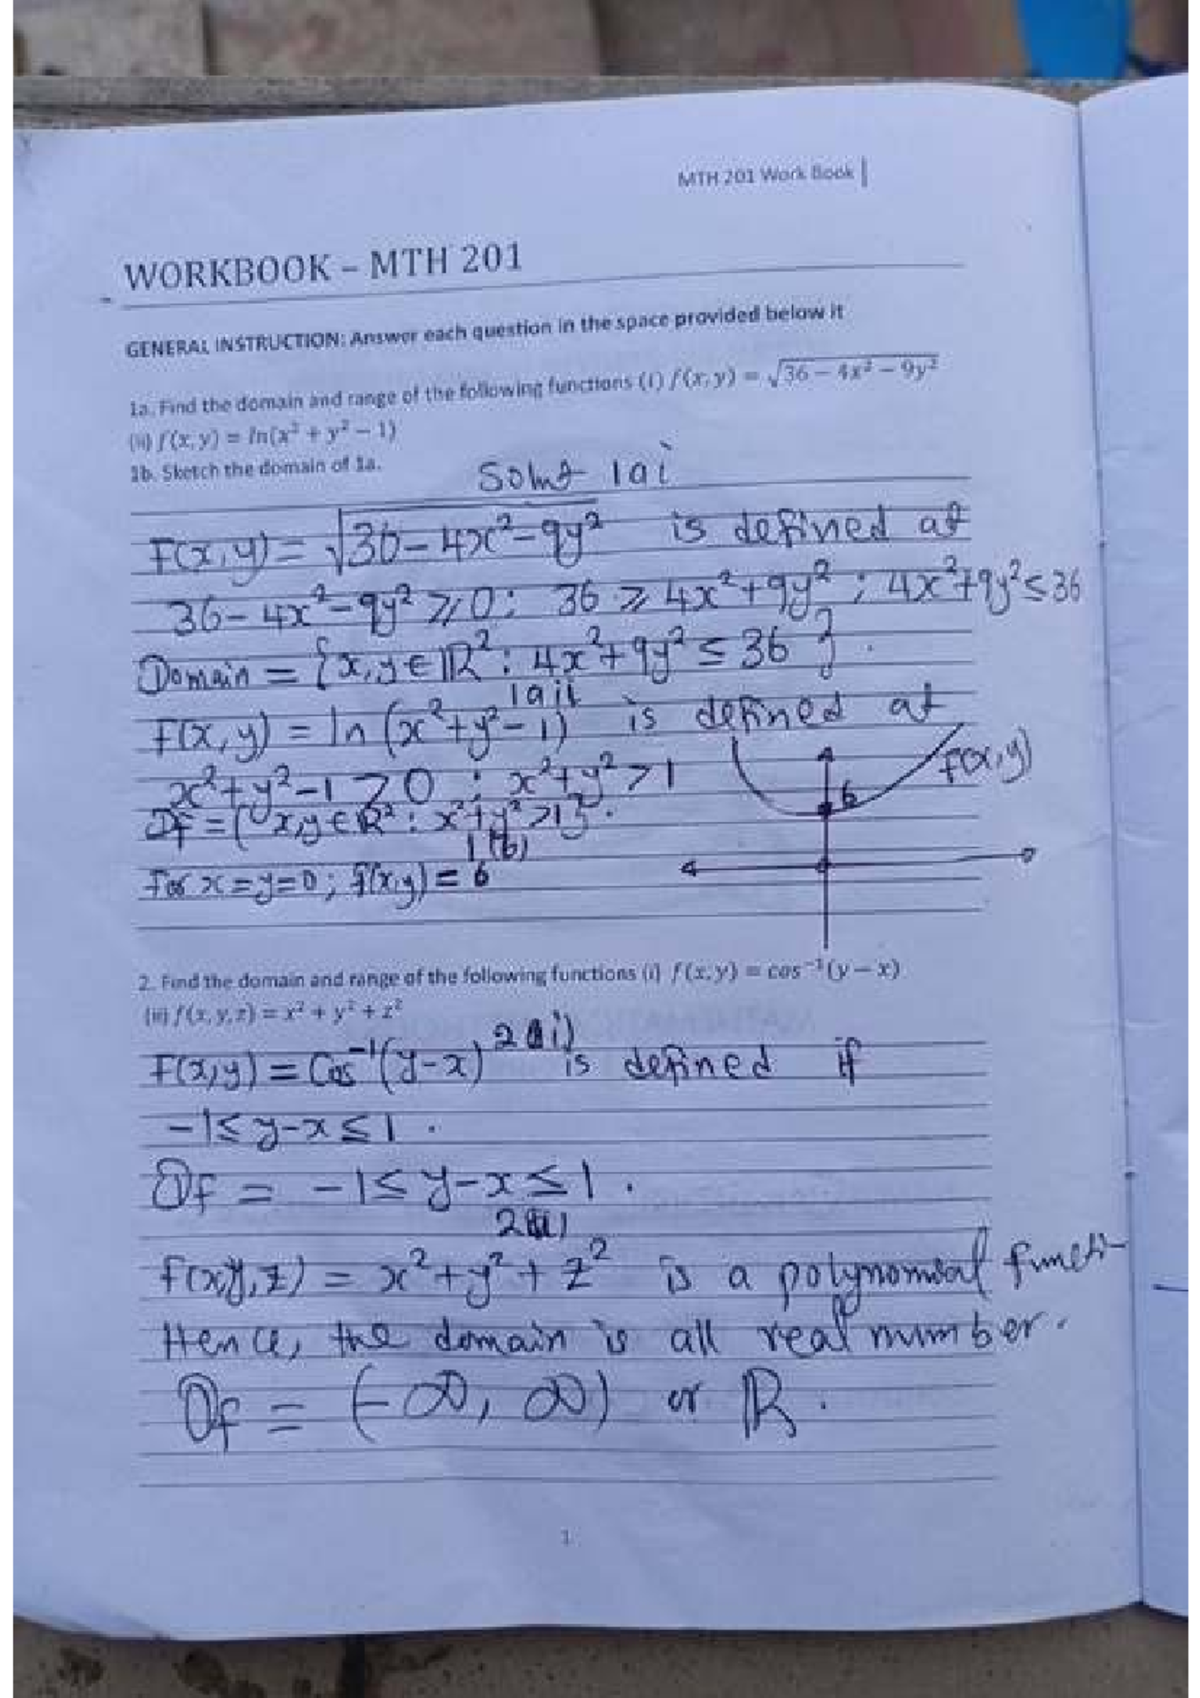 MTH 201 Work Book
WORKBOOK – MTH 201
GENERAL INSTRUCTION: Answer each question in the space provided below it
1a. Find the domain and range of the following functions (i) f(x, y) = √36 − 4x² − 9y²
(ii) f(x, y) = ln(x² + y² − 1)
1b. Sketch the domain of 1a.
Solnt 1ai
F(x,y) = √36 − 4x² − 9y² is defined at
36 − 4x² − 9y² ⩾ 0 ; 36 ⩾ 4x² + 9y² ; 4x² + 9y² ≤ 36
Domain = {x,y ∈ ℝ² : 4x² + 9y² ≤ 36 } .
1aii
F(x,y) = ln (x² + y² − 1) is defined at
x² + y² − 1 > 0 ; x² + y² > 1
f(x,y)
6
Df = { x,y ∈ ℝ² : x² + y² > 1} .
1(b)
For x = y = 0 ; f(x,y) = 6
2. Find the domain and range of the following functions (i) f(x, y) = cos⁻¹(y − x)
(ii) f(x, y, z) = x² + y² + z²
2(i)
F(x,y) = Cos⁻¹(y − x) is defined if
−1 ≤ y − x ≤ 1 .
Df = −1 ≤ y − x ≤ 1 .
2(ii)
F(x,y,z) = x² + y² + z² is a polynomial functi-
Hence, the domain is all real number.
Df = (−∞, ∞) or ℝ .
1